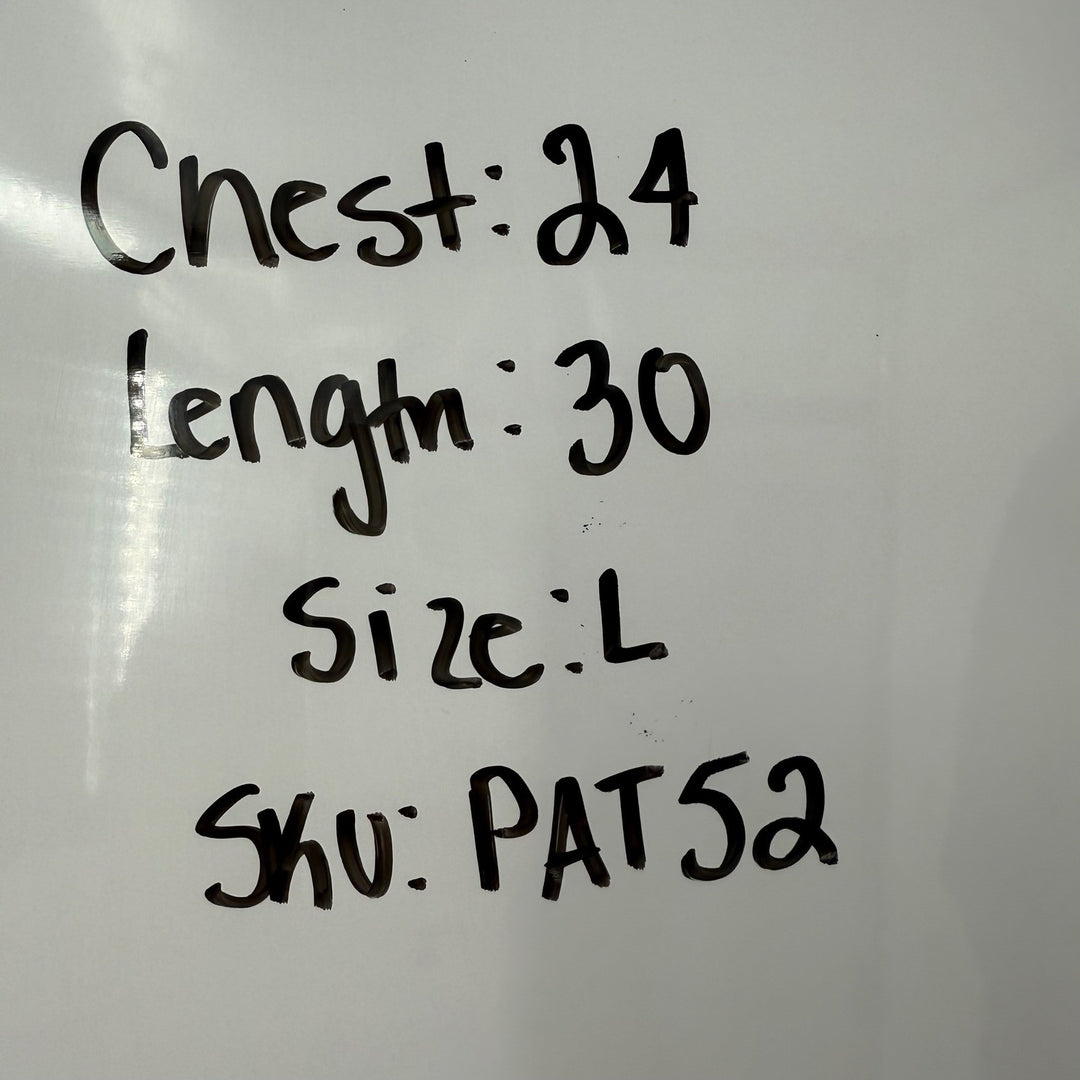 Chest: 24
Length: 30
Size: L
SKU: PAT52